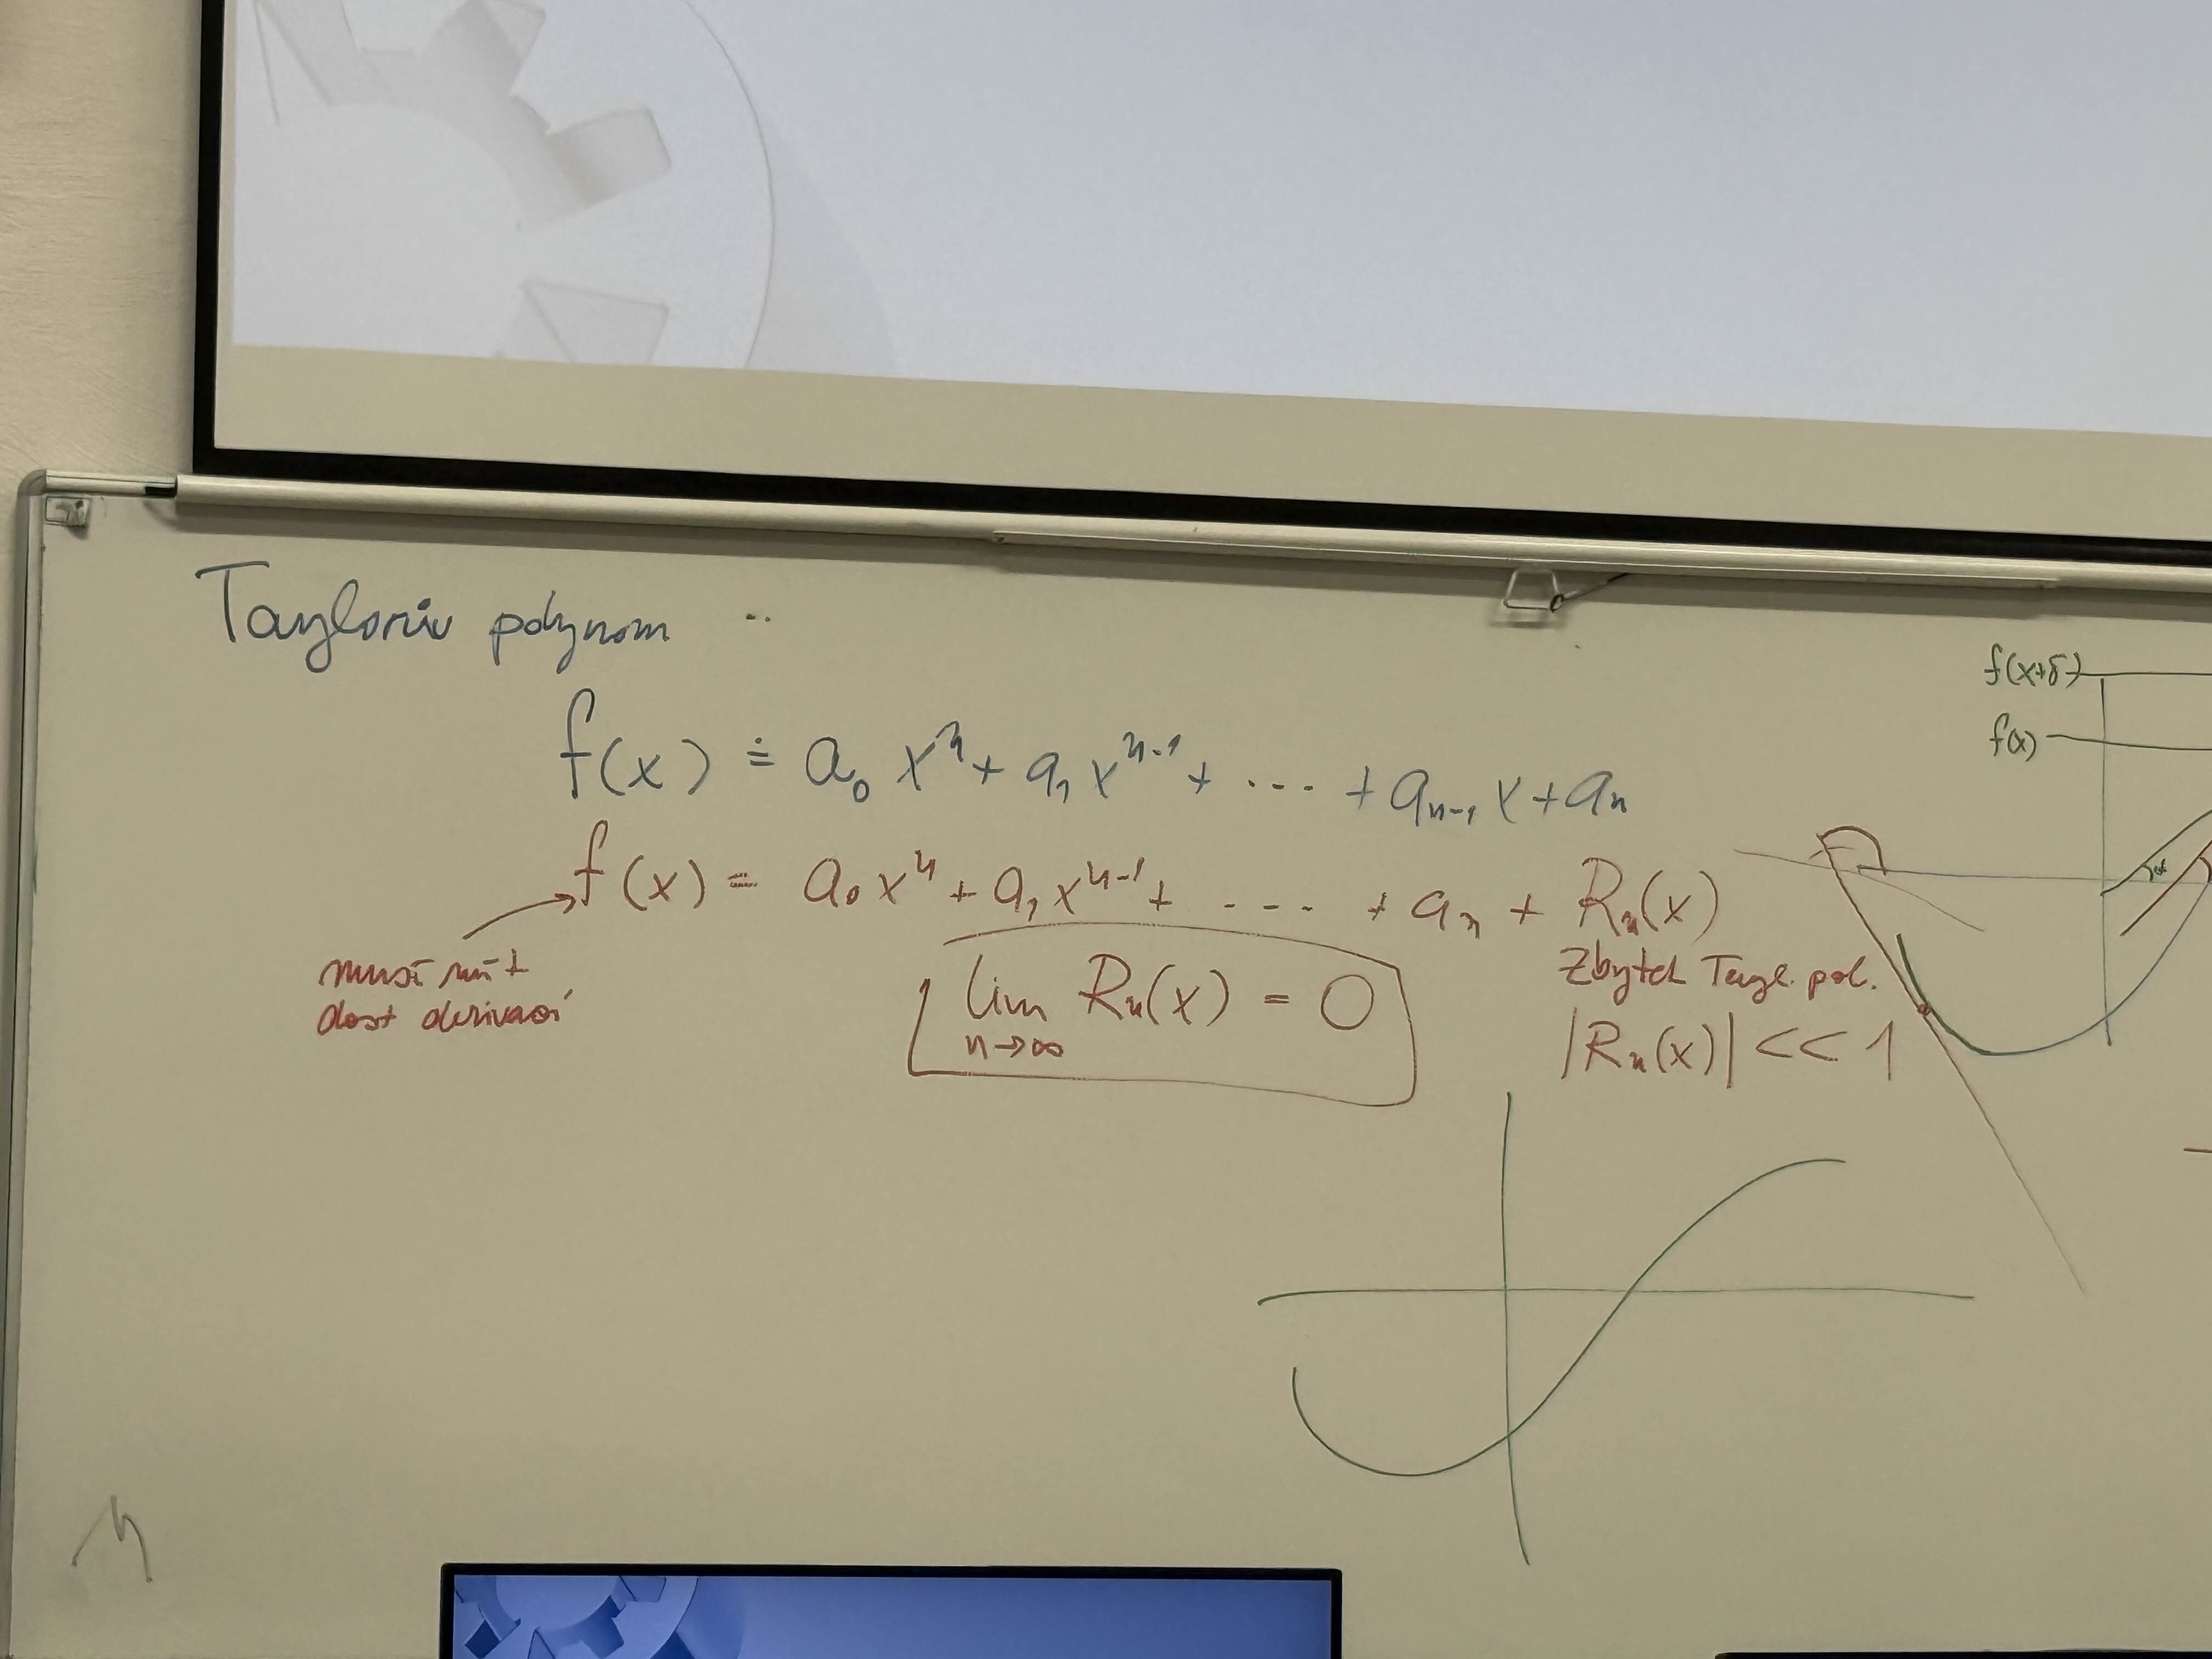 Taylorův polynom
f(x) ≐ a₀ xⁿ + a₁ xⁿ⁻¹ + ... + aₙ₋₁ x + aₙ
f(x) = a₀ xⁿ + a₁ xⁿ⁻¹ + ... + aₙ + Rₙ(x)
musí mít
dost derivací
lim Rₙ(x) = 0
n→∞
Zbytek Tayl. pol.
|Rₙ(x)| << 1
f(x+δ)
f(x)